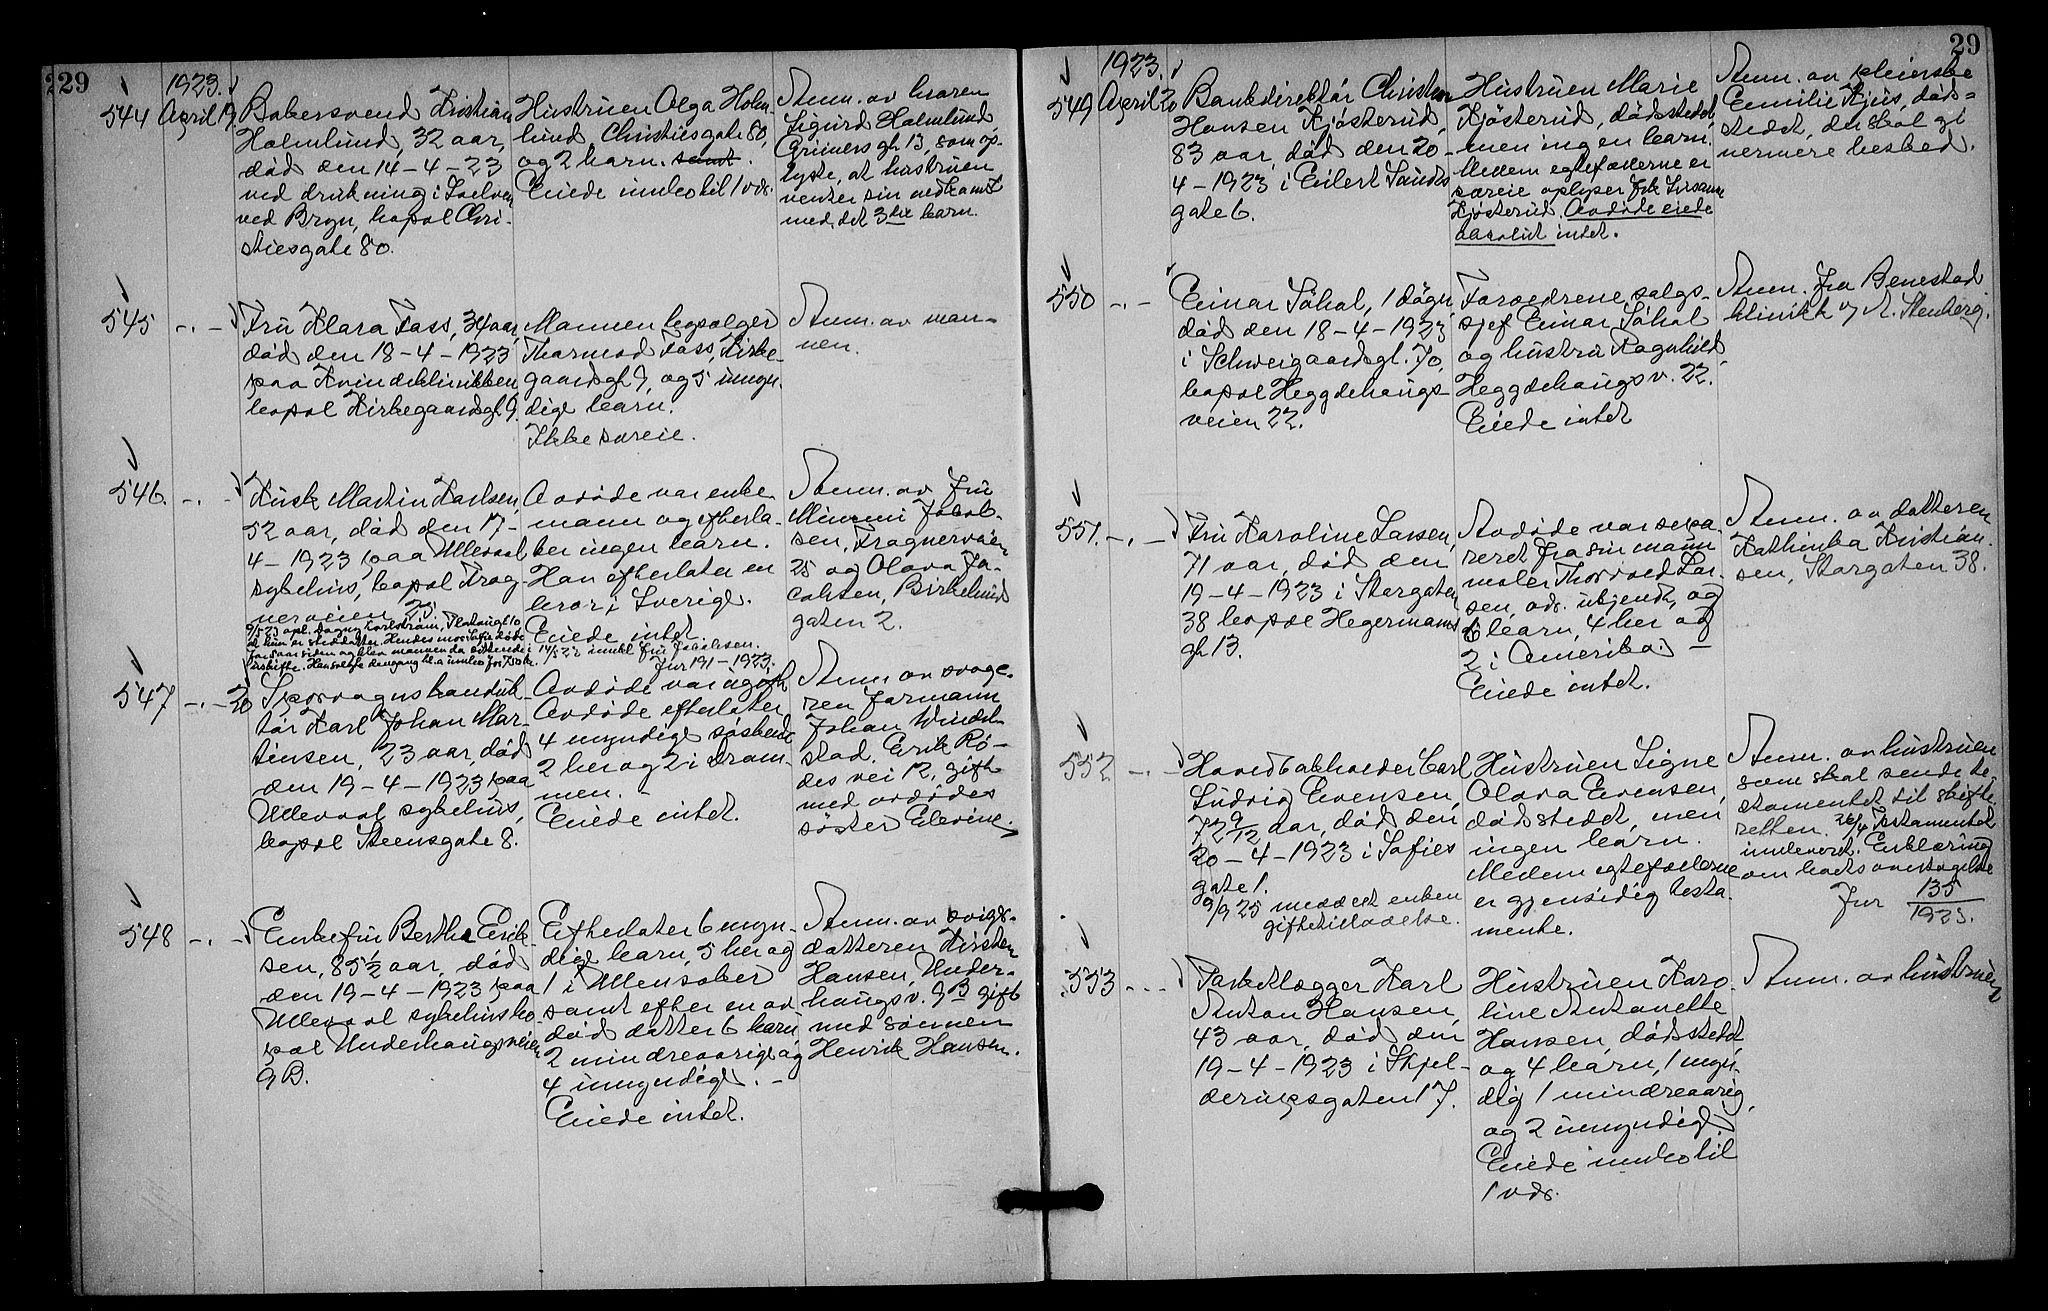 29
1923.
544 April 19. Bakersvend Kristian
Holmlund, 32 aar,
død den 14-4-23
ved drukning i Loelven
ved Bryn, bopæl Chri-
stiesgate 80.
Hustruen Olga Holm-
lund Christiesgate 80,
og 2 barn. samt.
Eiede indbo til 1 vdr.
Anm. av broren
Sigurd Holmlund
Grüners gt 13, som op-
lyste, at hustruen
venter sin nedkomst
med det 3die barn.
545 -.- Fru Klara Fass, 34 aar,
død den 18-4-1923
paa Kvindeklinikken,
bopæl Kirkegaardsgt 9.
Mannen
Thormod Fass, Kirke-
gaardsgt 9, og 5 umyn-
dige barn.
Ikke særeie.
Anm. av man-
nen.
546. -.- Kusk Martin Karlsen,
52 aar, død den 17-
4-1923 paa Ullevaal
sykehus, bopæl Frog-
nerveien 25.
Avdøde var enke-
mann og efterla-
ter ingen barn.
Han efterlater en
bror i Sverige.
Eiede intet.
14/5 23 innk fru Jakobsen.
Jur 191-1923.
Anm. av fru
Minmi Jakob-
sen, Frognerveien
25 og Olava Ja-
cobsen, Birkelund
gaten 2.
547 -.- 20 Sporvognskonduk-
tør Karl Johan Mar-
tinsen, 23 aar, død
den 19-4-1923 paa
Ullevaal sykehus,
bopæl Steensgate 8.
Avdøde var ugift
Avdøde efterlater
4 myndige søskende
2 her og 2 i Dram-
men.
Eiede intet.
Anm av svoge-
ren formann
Johan Windel-
stad, Erik Rö-
des vei 12, gift
med avdødes
søster Elevine.
548 -.- Enkefru Berthe Erik-
sen, 85½ aar, død
den 19-4-1923 paa
Ullevaal sykehus bo-
pæl Underhaugsveien
9B.
Efterlater 6 myn-
dige barn, 5 her og
1 i Mensober
samt efter en av-
død datter 6 barn
2 mindreaarige og
4 umyndige. -
Eiede intet.
Anm. av sviger-
datteren Kirsten
Hansen, Under-
haugsv. 9B gift
med sønnen
Henrik Hansen.
29
1923.
549 April 20 Bankdirektør Christian
Hansen Kjøsterud,
83 aar, død den 20-
4-1923 i Eilert Sundts
gate 6.
Hustruen Marie
Kjøsterud, dødsstedet,
men ingen barn.
Mellem egtefællerne er
særeie oplyser frk Susanne
Kjøsterud. Avdøde eiede
absolut intet.
Anm. av pleierske
Emilie Kjus, døds-
stedet, der skal gi
nærmere besked.
550 -.- Einar Söhol, 1 døgn
død den 18-4-1923
i Schweigaardsgt. 70,
bopæl Heggdehaugs-
veien 22.
Forældrene salgs-
sjef Einar Söhol
og hustru Ragnhild
Heggdehaugsv. 22.
Eiede intet
Anm. fra Benestad
klinikk v/ A. Stenberg.
551. -.- Fru Karoline Larsen,
71 aar, død den
19-4-1923 i Storgaten
38 bopæl Hegermanns
gt 13.
Avdøde var sepa-
reret fra sin mann
maler Thorvald Lar-
sen, adr. ubekjendt, og
6 barn, 4 her og
2 i Amerika. -
Eiede intet.
Anm. av datteren
Kathinka Kristian-
sen, Storgaten 38.
552 -.- Hovedbokholder Carl
Ludvig Evensen,
72 9/12 aar, død den
20-4-1923 i Sofies
gate 1.
9/9 25 meddelt enken
giftetilladelse.
Hustruen Signe
Olava Evensen,
dødsstedet, men
ingen barn.
Mellem egtefællerne
er gjensidig testa-
mente.
Anm. av hustruen
som skal sende te-
stamentet til skifte-
retten. 26/4 Testamentet
innleveret. Erklæring
om boets overtagelse
Jur 135
1923.
553 -.- Parketlægger Karl
Anton Hansen,
43 aar, død den
19-4-1923 i Skjel-
derupsgaten 17.
Hustruen Karo-
line Antonette
Hansen, dødsstedet,
og 4 barn, 1 myn-
dig 1 mindreaarig,
og 2 umyndige.
Eiede indbo til
1 vdr.
Anm. av hustruen